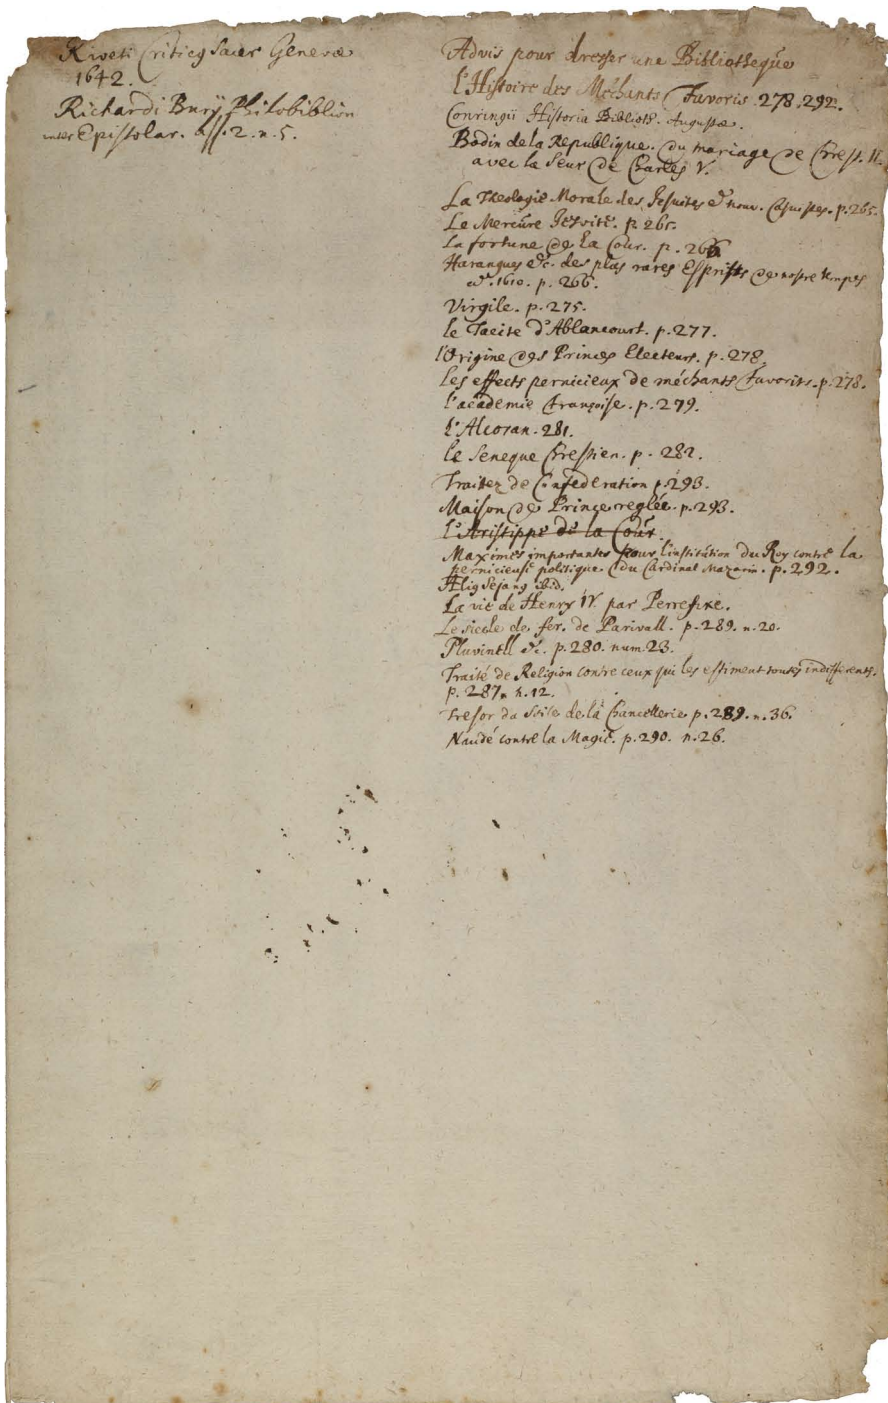 Riveti Criticus Sacer Genevæ
1642.
Richardi Bury Philobiblion
inter Epistolar. 2. n. 5.
Advis pour dresser une Bibliotheque
l'Histoire des Méchants Favoris. 278. 292.
Conringii Historia Biblioth. Augustæ.
Bodin de la Republique. du mariage de Christ. II.
avec la Seur de Charles V.
La Theologie Morale des Jesuites & nouv. Casuistes. p. 265.
Le Mercure Jesuite. p. 265.
La fortune de la Cour. p. 266
Harangues &c. des plus rares Esprits de nostre temps
1610. p. 266.
Virgile. p. 275.
le Tacite d'Ablancourt. p. 277.
l'Origine des Princes Electeurs. p. 278.
Les effects pernicieux de méchants Favorits. p. 278.
l'academie Françoise. p. 279.
l'Alcoran. 281.
le Seneque Chrestien. p. 282.
Traitez de Confederation p. 293.
Maison de Prince reglée. p. 293.
l'Aristippe de la Cour.
Maximes importantes pour l'institution du Roy contre la
pernicieuse politique du Cardinal Mazarin. p. 292.
Ælius Sejanus ibid.
La vie de Henry IV. par Perrefixe.
Le siecle de fer. de Parivall. p. 289. n. 20.
Pluvinell &c. p. 280. num. 23.
Traité de Religion contre ceux qui les estiment toutes indifferents.
p. 287. n. 12.
Tresor du Stile de la Chancellerie p. 289. n. 36.
Naudé contre la Magie. p. 290. n. 26.